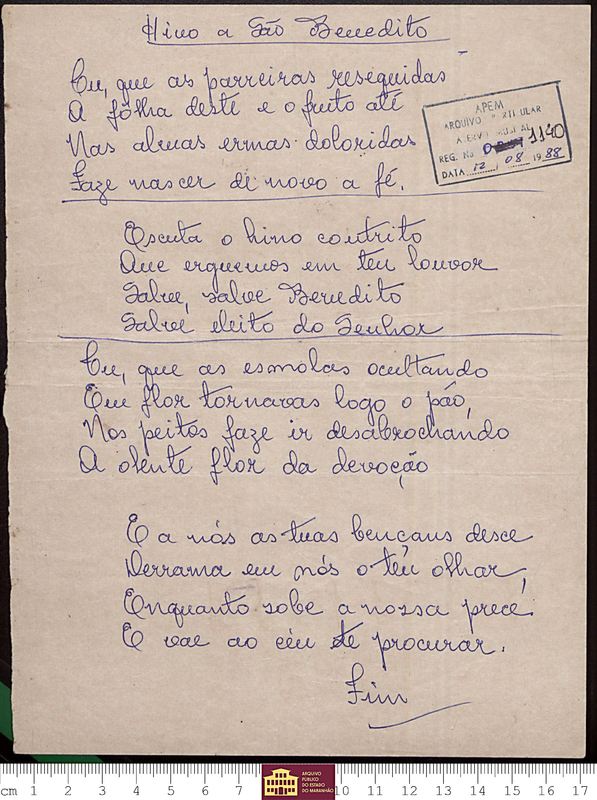 Hino a São Benedito
Tu, que as parreiras resequidas
A fôlha deste e o fruto até
Nas almas ermas doloridas
Faze nascer de novo a fé.
APEM
ARQUIVO
ACERVO MUSICAL
REG. No 1140
DATA 12 / 08 / 1988
Escuta o hino contrito
Que erguemos em teu louvor
Salve, salve Benedito
Salve eleito do Senhor
Tu, que as esmolas ocultando
Em flor tornavas logo o pão,
Nos peitos faze ir desabrochando
A olente flor da devoção
E a nós as tuas bençans desce
Derrama em nós o teu olhar,
Enquanto sobe a nossa prece
E vae ao céu te procurar.
Fim
cm 1 2 3 4 5 6 7 10 11 12 13 14 15 16 17
ARQUIVO
PÚBLICO
DO ESTADO
DO MARANHÃO